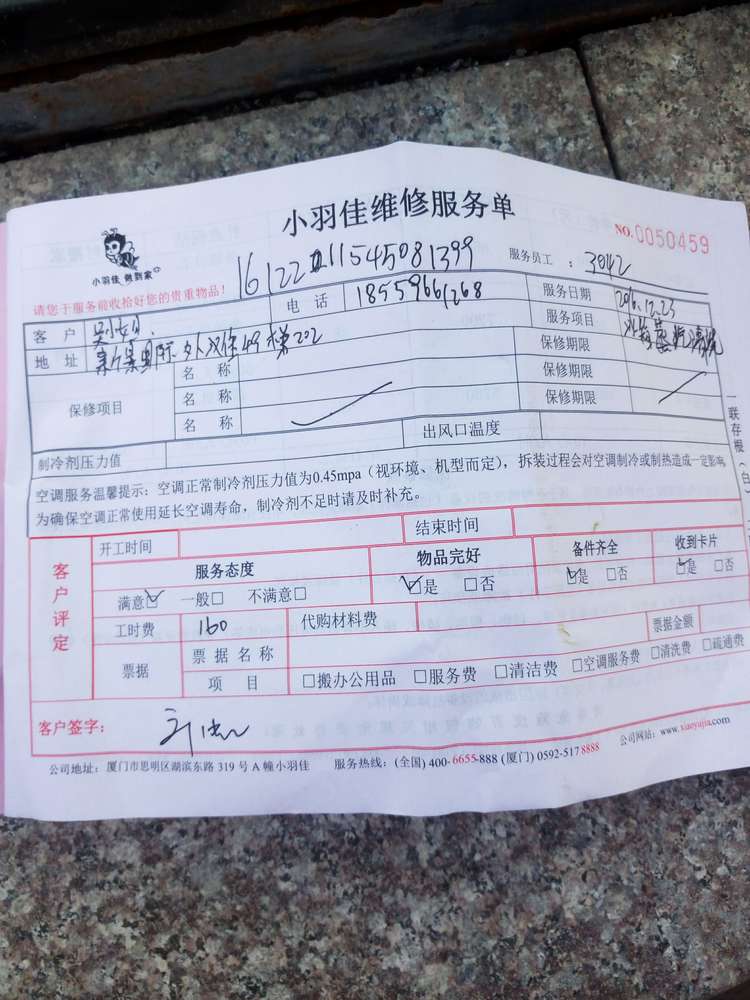 小羽佳维修服务单
NO.0050459
小羽佳 做到家
请您于服务前收拾好您的贵重物品！
服务员工 ： 3042
客 户 电 话 18559661268 服务日期 2016.12.23
地 址 202 服务项目
保修项目 名 称 保修期限
名 称 保修期限
名 称 保修期限
制冷剂压力值 出风口温度
空调服务温馨提示：空调正常制冷剂压力值为0.45mpa（视环境、机型而定），拆装过程会对空调制冷或制热造成一定影响，
为确保空调正常使用延长空调寿命，制冷剂不足时请及时补充。
一联存根（白
客户评定
开工时间 结束时间
服务态度 物品完好 备件齐全 收到卡片
满意☑ 一般□ 不满意□ ☑是 □否 ☑是 □否 ☑是 □否
工时费 160 代购材料费
票据 票 据 名 称 票据金额
项 目 □搬办公用品 □服务费 □清洁费 □空调服务费 □清洗费 □疏通费
客户签字：
公司地址：厦门市思明区湖滨东路 319 号 A 幢小羽佳 服务热线：(全国) 400-6655-888 (厦门) 0592-517 8888 公司网站：www.xiaoyujia.com